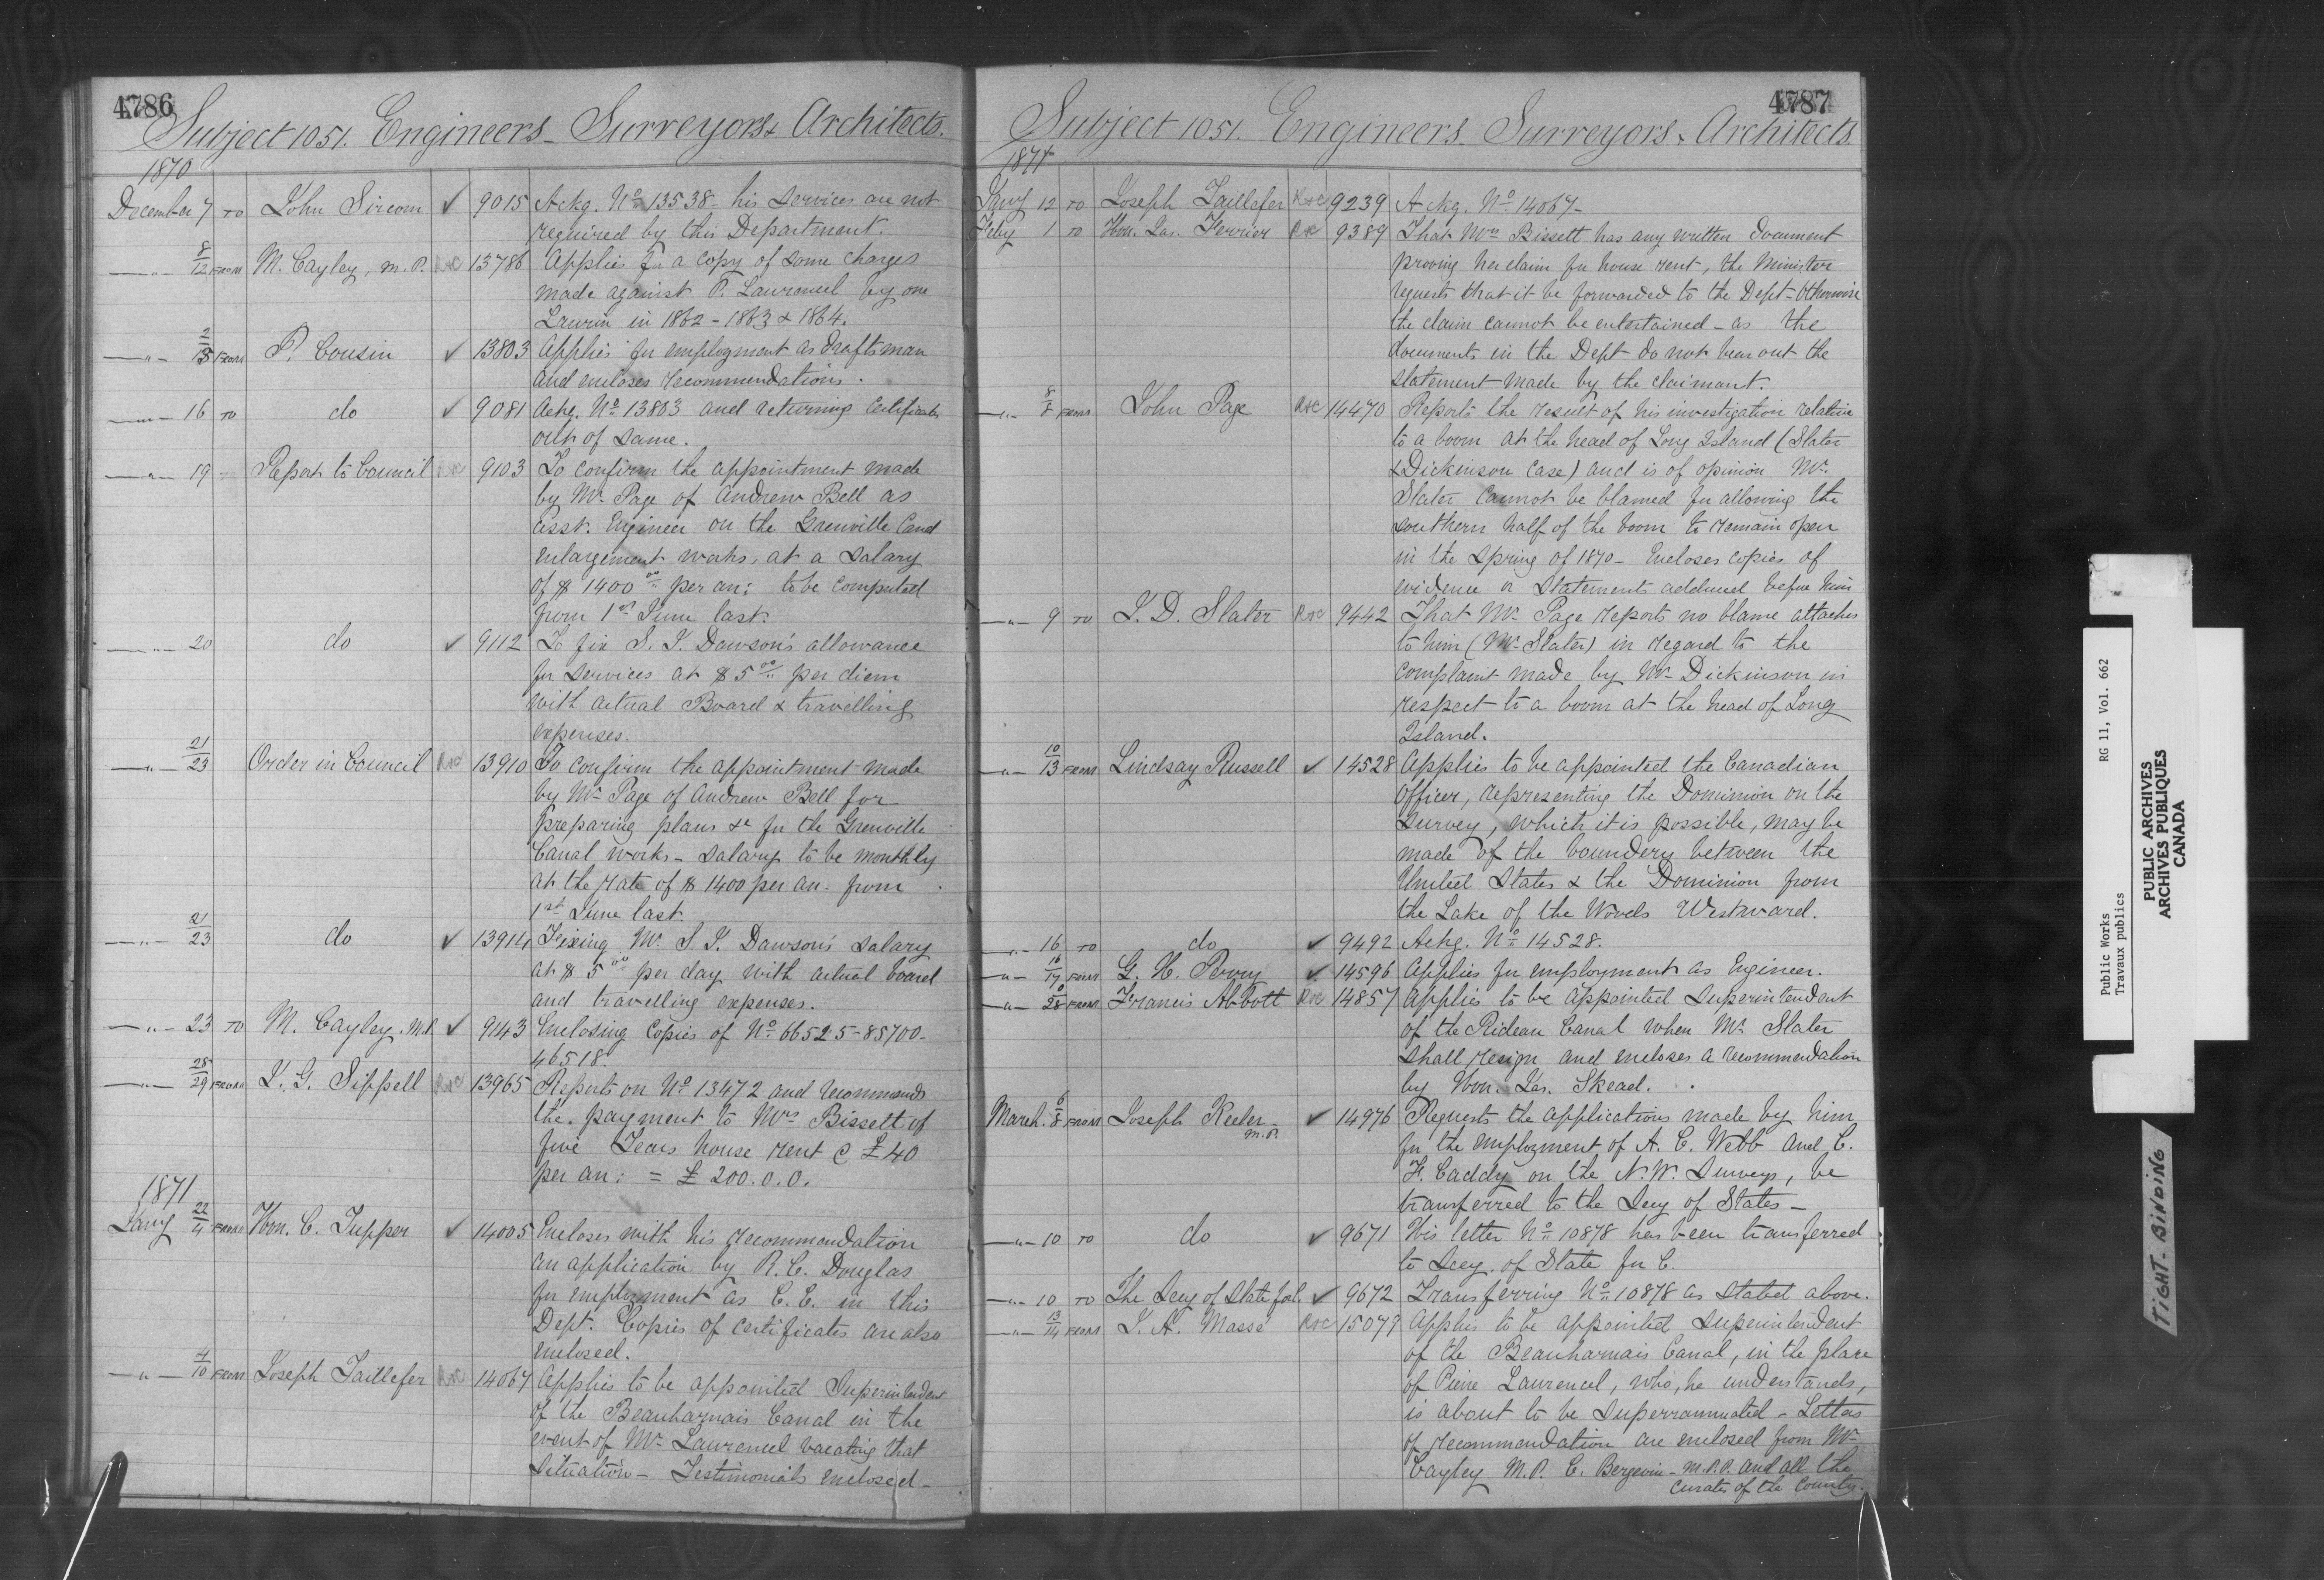 4786
Subject 1051. Engineers - Surveyors & Architects.
1870
December 7 TO John Sircom ✓ 9015 Ackg. No 13538 - his services are not
required by this Department.
— " — 8/12 FROM M. Cayley, M.P. 13786 Applies for a copy of some charges
made against P. Laurencel by one
Laurin in 1862 - 1863 & 1864.
— " — FROM P. Cousin ✓ 13803 Applies for employment as draftsman
and encloses recommendations.
— " — 16 TO do ✓ 9081 Ackg. No 13803 and returning certificates
out of same.
— " — 19 Report to Council 9103 To confirm the appointment made
by Mr Page of Andrew Bell as
asst. Engineer on the Grenville Canal
enlargement works, at a salary
of $1400.00 per an: to be computed
from 1st June last.
— " — 20 do ✓ 9112 To fix S. J. Dawson's allowance
for services at $5.00 per diem
with actual Board & travelling
expenses.
— " — 21/23 Order in Council 13910 To confirm the appointment made
by Mr Page of Andrew Bell for
preparing plans &c for the Grenville
Canal works - salary to be monthly
at the rate of $1400 per an. from
1st June last.
— " — 21/23 do ✓ 13914 Fixing Mr S. J. Dawson's salary
at $5.00 per day with actual board
and travelling expenses.
— " — 23 TO M. Cayley. M.P. ✓ 9143 Enclosing copies of No 66525 - 85700 -
46518.
— " — 28/29 FROM J. G. Sippell 13965 Reports on No 13472 and recommends
the payment to Mrs Bissett of
five Years house rent @ £40
per an: = £200.0.0.
1871
Jany FROM Hon. C. Tupper ✓ 14005 Encloses with his recommendation
an application by R. C. Douglas
for employment as C. E. in this
Dept. Copies of certificates are also
enclosed.
— " — 4/10 FROM Joseph Taillefer 14067 Applies to be appointed Superintendent
of the Beauharnais Canal in the
event of Mr Laurencel vacating that
situation - Testimonials enclosed -
4787
Subject 1051. Engineers - Surveyors & Architects.
1871
Jany 12 TO Joseph Taillefer 9239 Ackg. No 14067 -
Feby 1 TO Hon. Jas. Ferrier 9389 That Mrs Bissett has any written document
proving her claim for house rent, the Minister
requests that it be forwarded to the Dept - Otherwise
the claim cannot be entertained - as the
documents in the Dept do not bear out the
statement made by the claimant.
— " — 8/8 FROM John Page 14470 Reports the result of his investigation relative
to a boom at the head of Long Island (Slater
& Dickinson case) and is of opinion Mr.
Slater cannot be blamed for allowing the
southern half of the boom to remain open
in the spring of 1870 - Encloses copies of
evidence or statements adduced before him
— " — 9 TO J. D. Slater 9442 That Mr Page reports no blame attaches
to him (Mr Slater) in regard to the
complaint made by Mr Dickinson in
respect to a boom at the head of Long
Island.
— " — 10/13 FROM Lindsay Russell ✓ 14528 Applies to be appointed the Canadian
Officer, representing the Dominion on the
survey, which it is possible, may be
made of the boundery between the
United States & the Dominion from
the Lake of the Woods Westward.
— " — 16 TO do ✓ 9492 Ackg. No 14528.
— " — 16/17 FROM G. H. Perry ✓ 14596 Applies for employment as Engineer.
— " — FROM Francis Abbott 14857 Applies to be appointed Superintendent
of the Rideau Canal when Mr Slater
shall resign and encloses a recommendation
by Hon. Jas. Skead.
March 6/8 FROM Joseph Keeler - M.P. ✓ 14976 Requests the applications made by him
for the employment of A. C. Webb and C.
F. Caddy on the N. W. Surveys, be
transferred to the Secy of States -
— " — 10 TO do ✓ 9671 His letter No 10878 has been transferred
to Secy. of State for C.
— " — 10 TO The Secy of State for C. ✓ 9672 Transferring No 10878 as stated above.
— " — 13/14 FROM J. A. Massé 15079 Applies to be appointed Superintendent
of the Beauharnais Canal, in the place
of Pierre Laurencel, who, he understands,
is about to be superrannuated - Letters
of recommendation are enclosed from Mr
Cayley M.P. C. Bergevin - M.P.P. and all the
curates of the County.
Public Works RG 11, Vol. 662
Travaux publics
PUBLIC ARCHIVES
ARCHIVES PUBLIQUES
CANADA
TIGHT BINDING